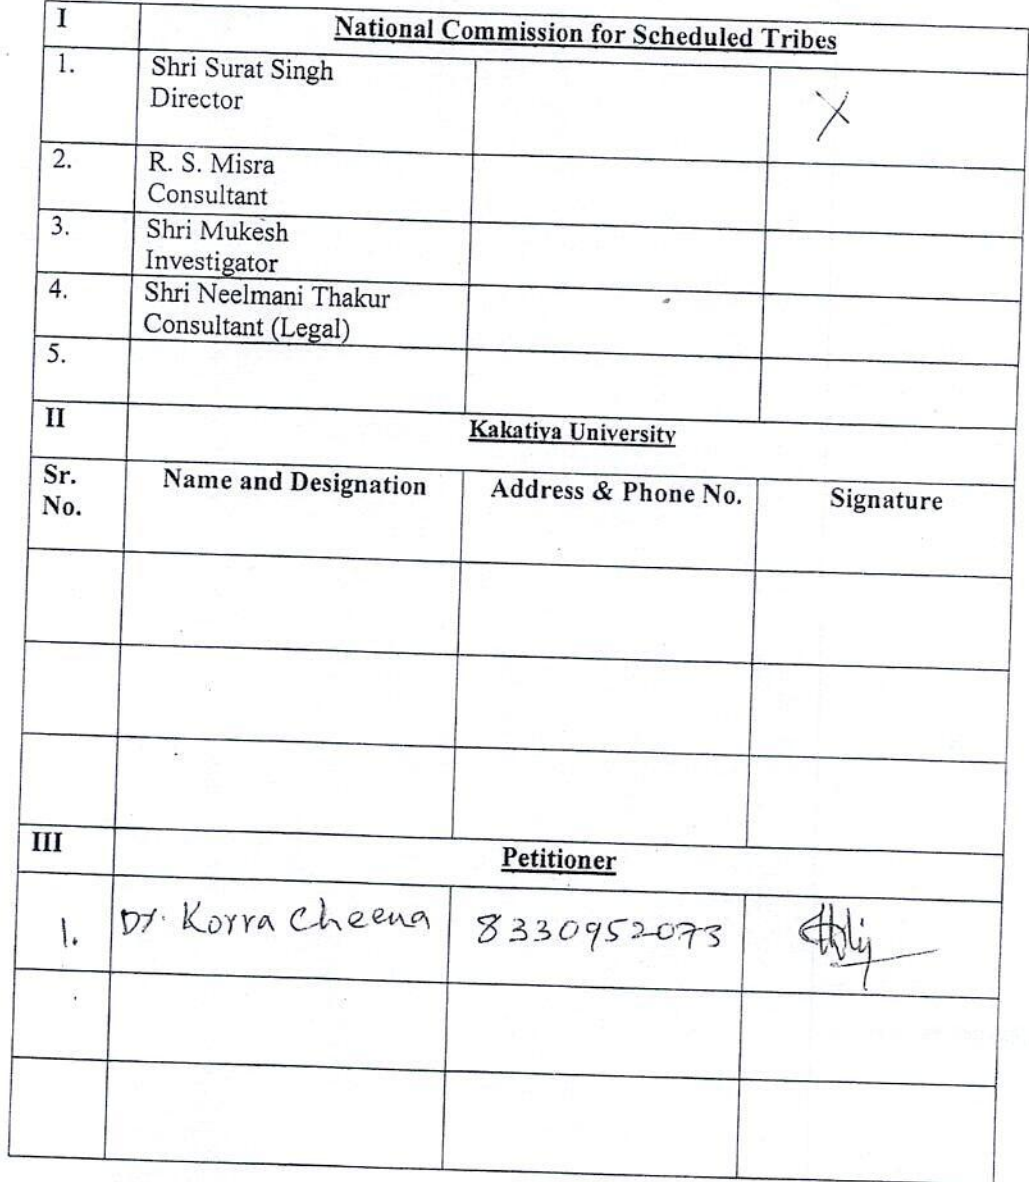 I National Commission for Scheduled Tribes
1. Shri Surat Singh
Director
X
2. R. S. Misra
Consultant
3. Shri Mukesh
Investigator
4. Shri Neelmani Thakur
Consultant (Legal)
5.
II Kakatiya University
Sr. Name and Designation Address & Phone No. Signature
No.
III Petitioner
1. Dr. Korra Cheena 8330952073